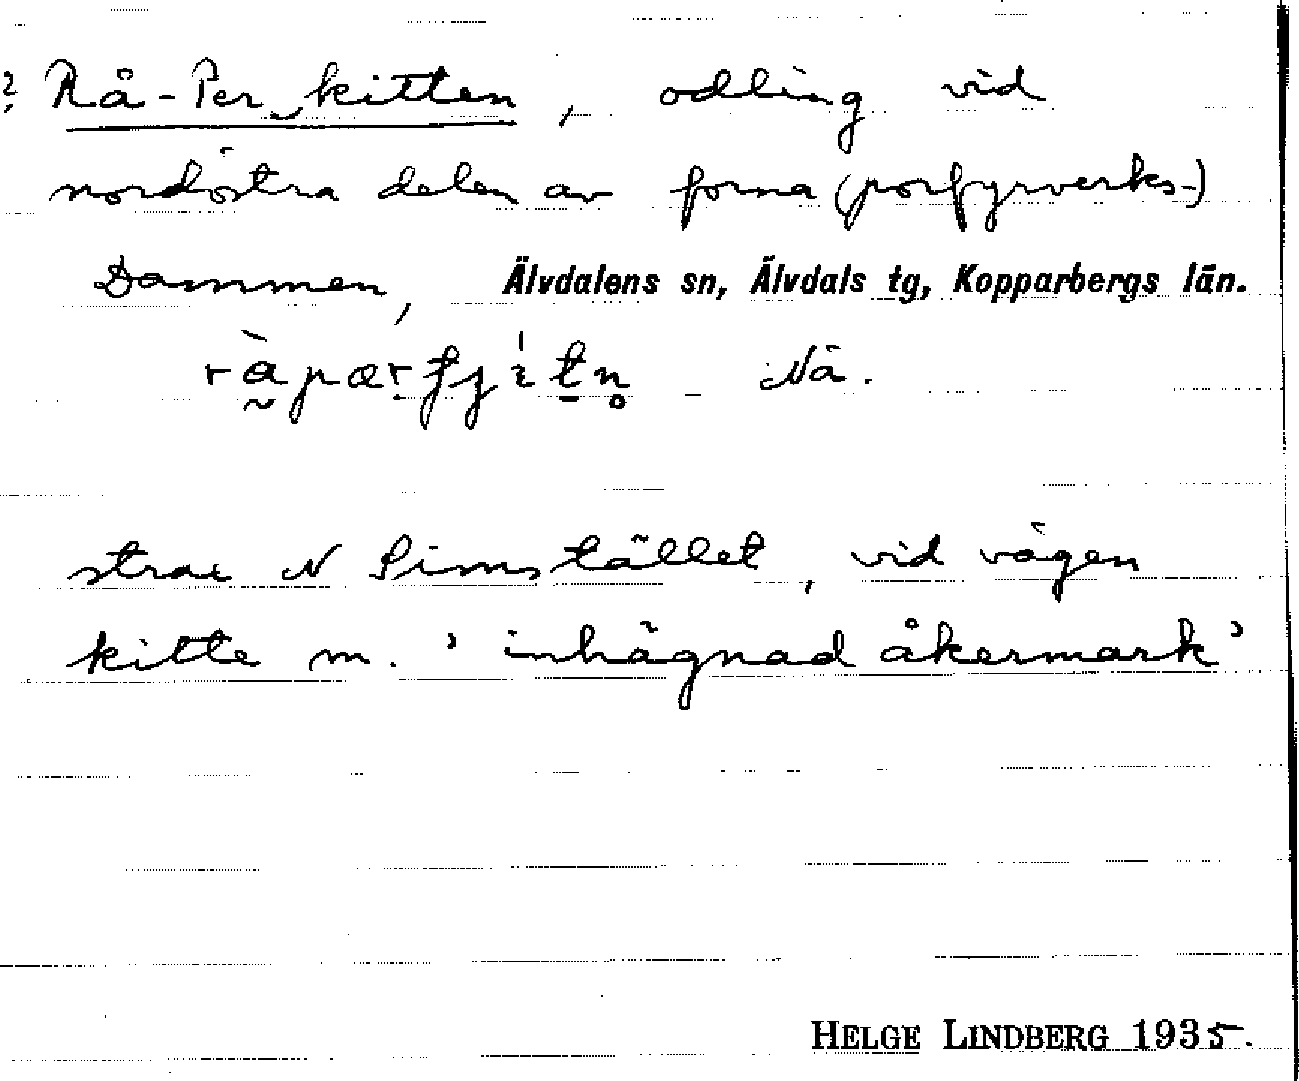 ? Rå-Per‿kitten, odling vid
nordöstra delen av forna (porfyrverks-)
Dammen, Älvdalens sn, Älvdals tg, Kopparbergs län.
Nä.
strax N Simstället, vid vägen
kitte m. 'inhägnad åkermark'
HELGE LINDBERG 1935.